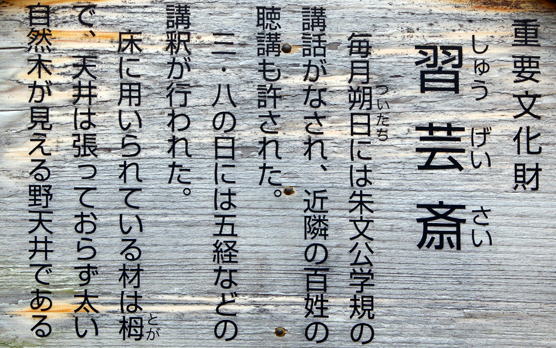 重要文化財
習芸斎
しゅう げい さい
毎月朔日には朱文公学規の
ついたち
講話がなされ、近隣の百姓の
聴講も許された。
三・八の日には五経などの
講釈が行われた。
床に用いられている材は栂
とが
で、天井は張っておらず太い
自然木が見える野天井である